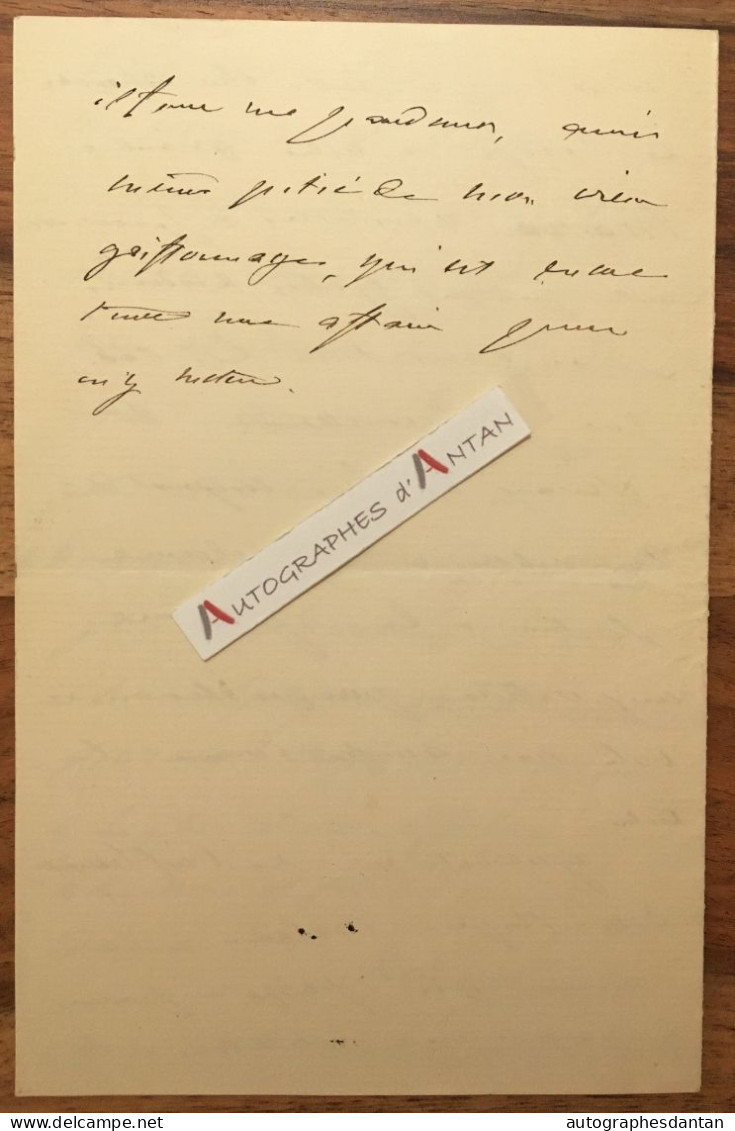 il faut me pardonner, avoir
même pitié de mon vieux
griffonnage, qui est encore
toute une affaire pour
m'y mettre.
AUTOGRAPHES d'ANTAN
delcampe.net
autographesdantan